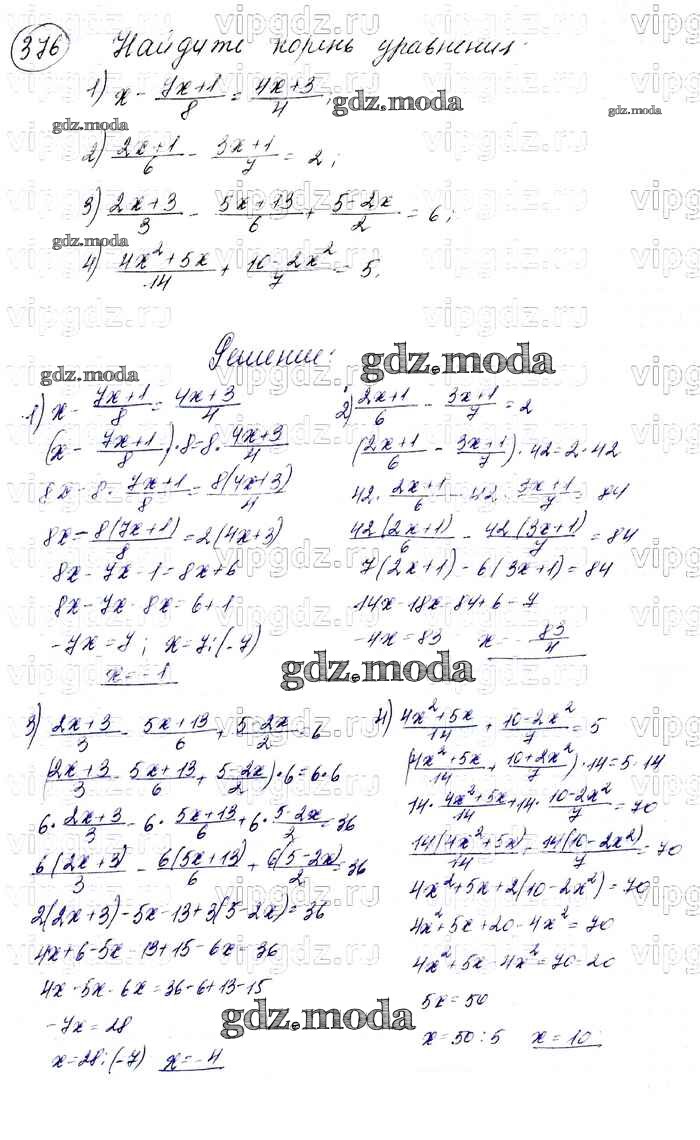 376 Найдите корень уравнения:
1) x - (7x+1)/8 = (4x+3)/4;
2) (2x+1)/6 - (3x+1)/7 = 2;
3) (2x+3)/3 - (5x+13)/6 + (5-2x)/2 = 6;
4) (4x²+5x)/14 + (10-2x²)/7 = 5.
Решение:
1) x - (7x+1)/8 = (4x+3)/4
(x - (7x+1)/8)·8 = 8·(4x+3)/4
8x - 8·(7x+1)/8 = 8(4x+3)/4
8x - 8(7x+1)/8 = 2(4x+3)
8x - 7x - 1 = 8x + 6
8x - 7x - 8x = 6 + 1
-7x = 7; x = 7:(-7)
x = -1
2) (2x+1)/6 - (3x+1)/7 = 2
((2x+1)/6 - (3x+1)/7)·42 = 2·42
42·(2x+1)/6 - 42·(3x+1)/7 = 84
42(2x+1)/6 - 42(3x+1)/7 = 84
7(2x+1) - 6(3x+1) = 84
14x - 18x = 84 + 6 - 7
-4x = 83 x = - 83/4
3) (2x+3)/3 - (5x+13)/6 + (5-2x)/2 = 6
((2x+3)/3 - (5x+13)/6 + (5-2x)/2)·6 = 6·6
6·(2x+3)/3 - 6·(5x+13)/6 + 6·(5-2x)/2 = 36
6(2x+3)/3 - 6(5x+13)/6 + 6(5-2x)/2 = 36
2(2x+3) - 5x - 13 + 3(5-2x) = 36
4x + 6 - 5x - 13 + 15 - 6x = 36
4x - 5x - 6x = 36 - 6 + 13 - 15
-7x = 28
x = 28:(-7) x = -4
4) (4x²+5x)/14 + (10-2x²)/7 = 5
((4x²+5x)/14 + (10+2x²)/7)·14 = 5·14
14·(4x²+5x)/14 + 14·(10-2x²)/7 = 70
14(4x²+5x)/14 + 14(10-2x²)/7 = 70
4x²+5x+2(10-2x²) = 70
4x²+5x+20-4x² = 70
4x²+5x-4x² = 70-20
5x = 50
x = 50:5 x = 10
gdz.moda
gdz.moda
gdz.moda
gdz.moda
gdz.moda
gdz.moda
gdz.moda
gdz.moda
gdz.moda
vipgdz.ru